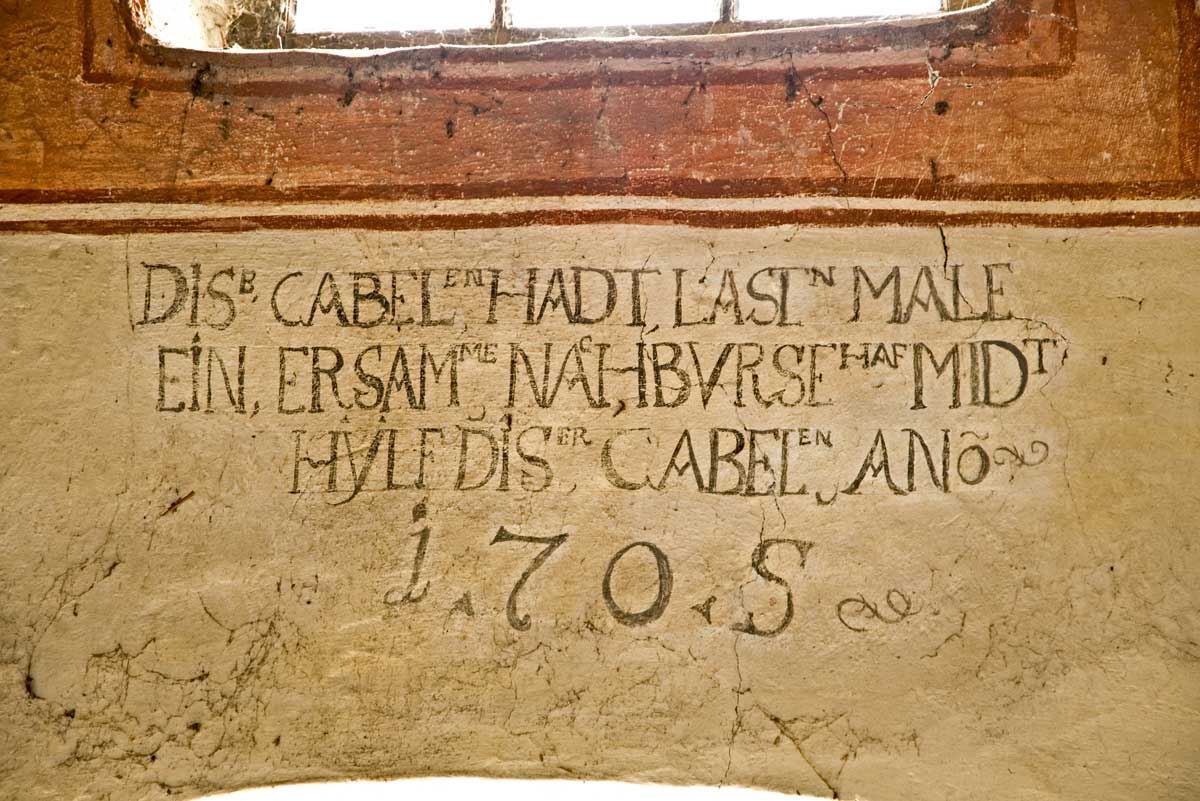 DiSᴮ, CABELᴱᴺ HADT, LASTᴺ MALE
EiN, ERSAMᴹᴱ NACH, BVRSEᴴᴬᶠ MIDT
HŸLF DiSᴱᴿ CABELᴱᴺ ANÕ
1705